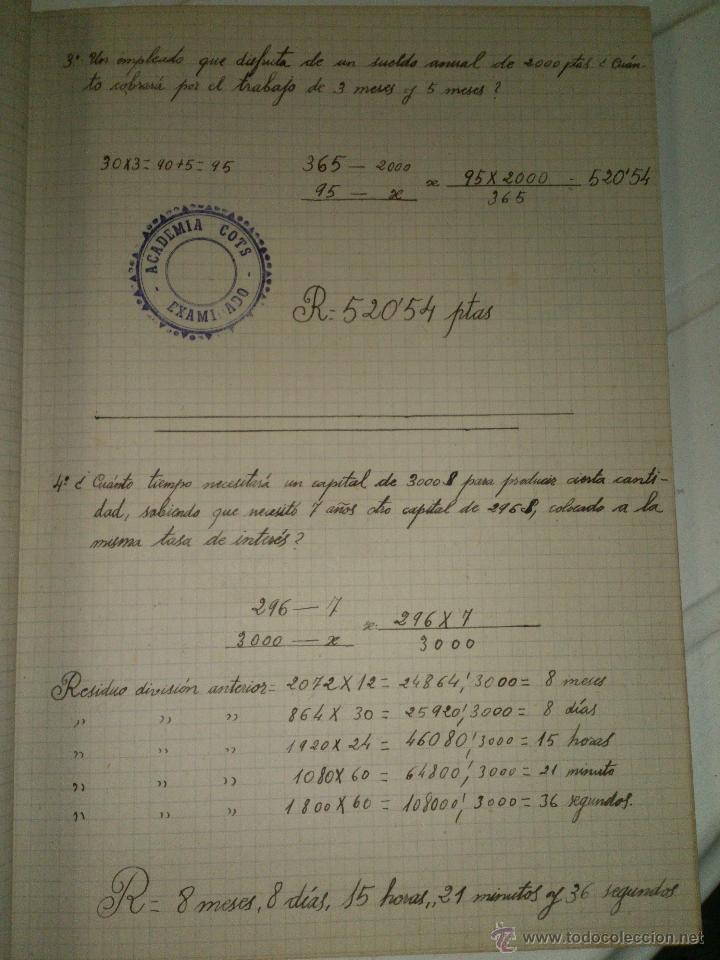 3º Un empleado que disfruta de un sueldo anual de 2000 ptas. ¿Cuán-
to cobrará por el trabajo de 3 meses y 5 meses?
30x3=90+5=95
365 — 2000
95 — x
x 95X2000 = 520'54
365
ACADEMIA COTS
- EXAMINADO -
R= 520'54 ptas
4º ¿Cuánto tiempo necesitará un capital de 3000$ para producir cierta canti-
dad, sabiendo que necesitó 7 años otro capital de 296$, colocado a la
misma tasa de interés?
296 — 7
3000 — x
x= 296 X 7
3000
Residuo división anterior = 2072 X 12 = 24864; 3000 = 8 meses
,, ,, ,, 864 X 30 = 25920; 3000 = 8 días
,, ,, ,, 1920 X 24 = 46080; 3000 = 15 horas
,, ,, ,, 1080 X 60 = 64800; 3000 = 21 minuto
,, ,, ,, 1800 X 60 = 108000; 3000 = 36 segundos.
R= 8 meses, 8 días, 15 horas,, 21 minutos y 36 segundos
www.todocoleccion.net